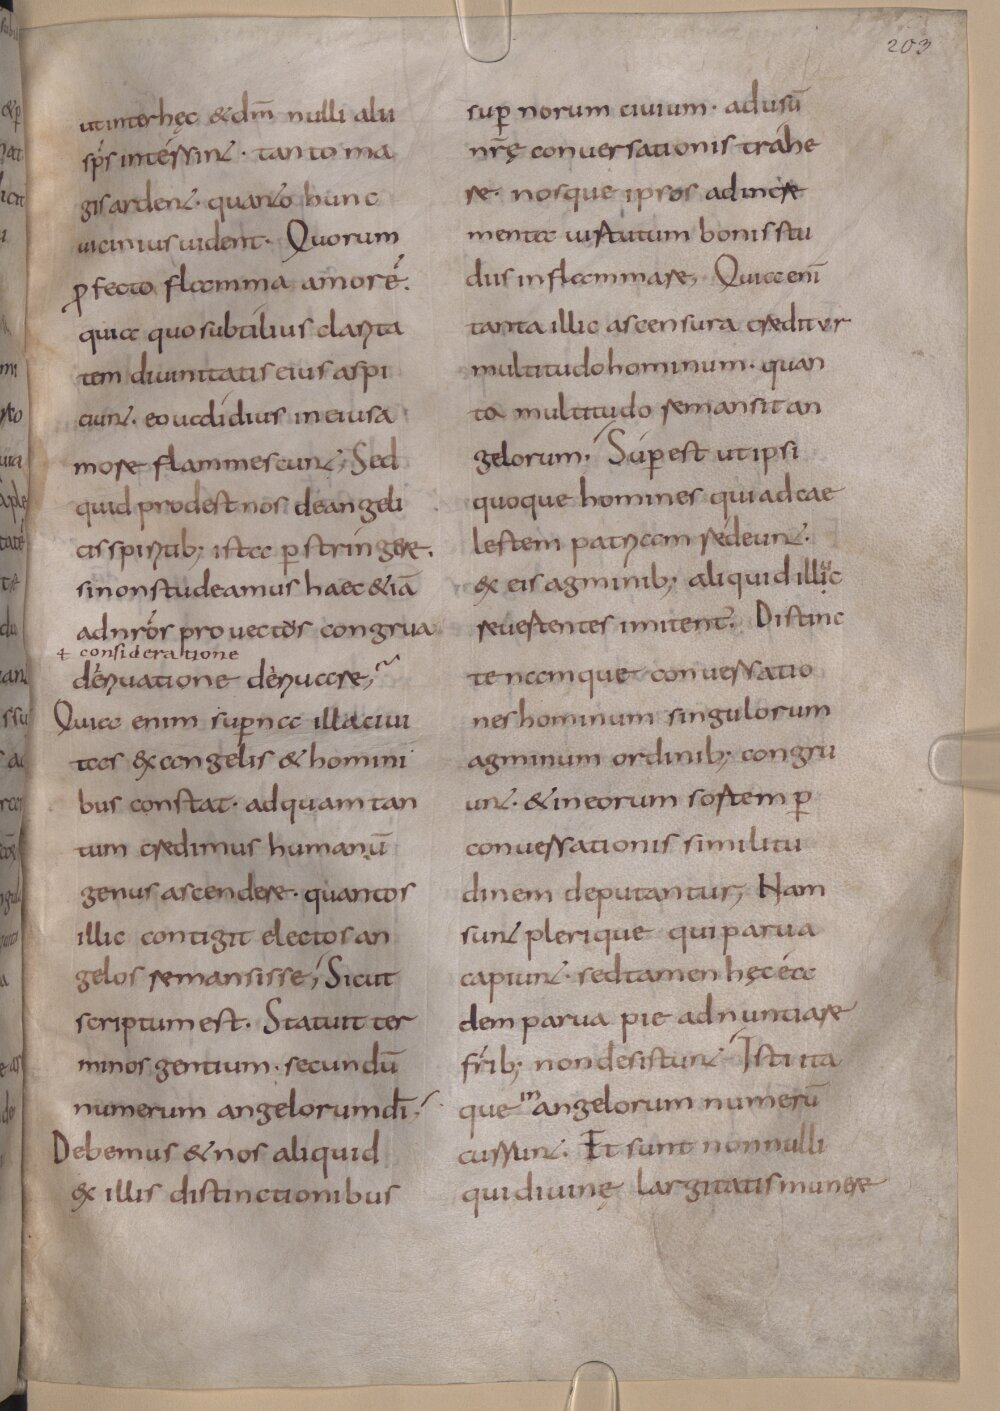 203
ut inter hęc & dm̄ nulli alii
sp̄s intersint · tanto ma
gis ardent · quanto hunc
uicinius uident · Quorum
ꝑfecto flamma amor ē·
quia quo subtilius clarita
tem diuinitatis eius aspi
ciunt · eo ualidius in eius a
more flammescunt; Sed
quid prodest nos de angeli
cis spiritib; ista ꝑstringere ·
si non studeamus haec & iā
ad nr̄os prouectos congrua
ł consideratione
deriuatione deriuare;
Quia enim suꝑna illa ciui
tas ex angelis & homini
bus constat · ad quam tan
tum credimus humanū
genus ascendere · quantos
illic contigit electos an
gelos remansisse; Sicut
scriptum est · Statuit ter
minos gentium · secundū
numerum angelorum dī;
Debemus & nos aliquid
ex illis distinctionibus
suꝑnorum ciuium · ad usū
nr̄ę conuersationis trahe
re · nosque ipsos ad incre
menta uirtutum bonis stu
diis inflammare; Quia enī
tanta illic ascensura creditur
multitudo hominum · quan
ta multitudo remansit an
gelorum · Suꝑest ut ipsi
quoque homines qui ad cae
lestem patriam redeunt ·
ex eis agminib; aliquid illuc
reuertentes imitent᷑ · Distinc
te namque conuersatio
nes hominum singulorum
agminum ordinib; congru
unt · & in eorum sortem ꝑ
conuersationis similitu
dinem deputantur; Nam
sunt plerique qui parua
capiunt · sed tamen hęc ea
dem parua pie adnuntiare
fr̄ib; non desistunt · Isti ita
que ᵐangelorum numerū
currunt · Et sunt nonnulli
qui diuinę largitatis munere